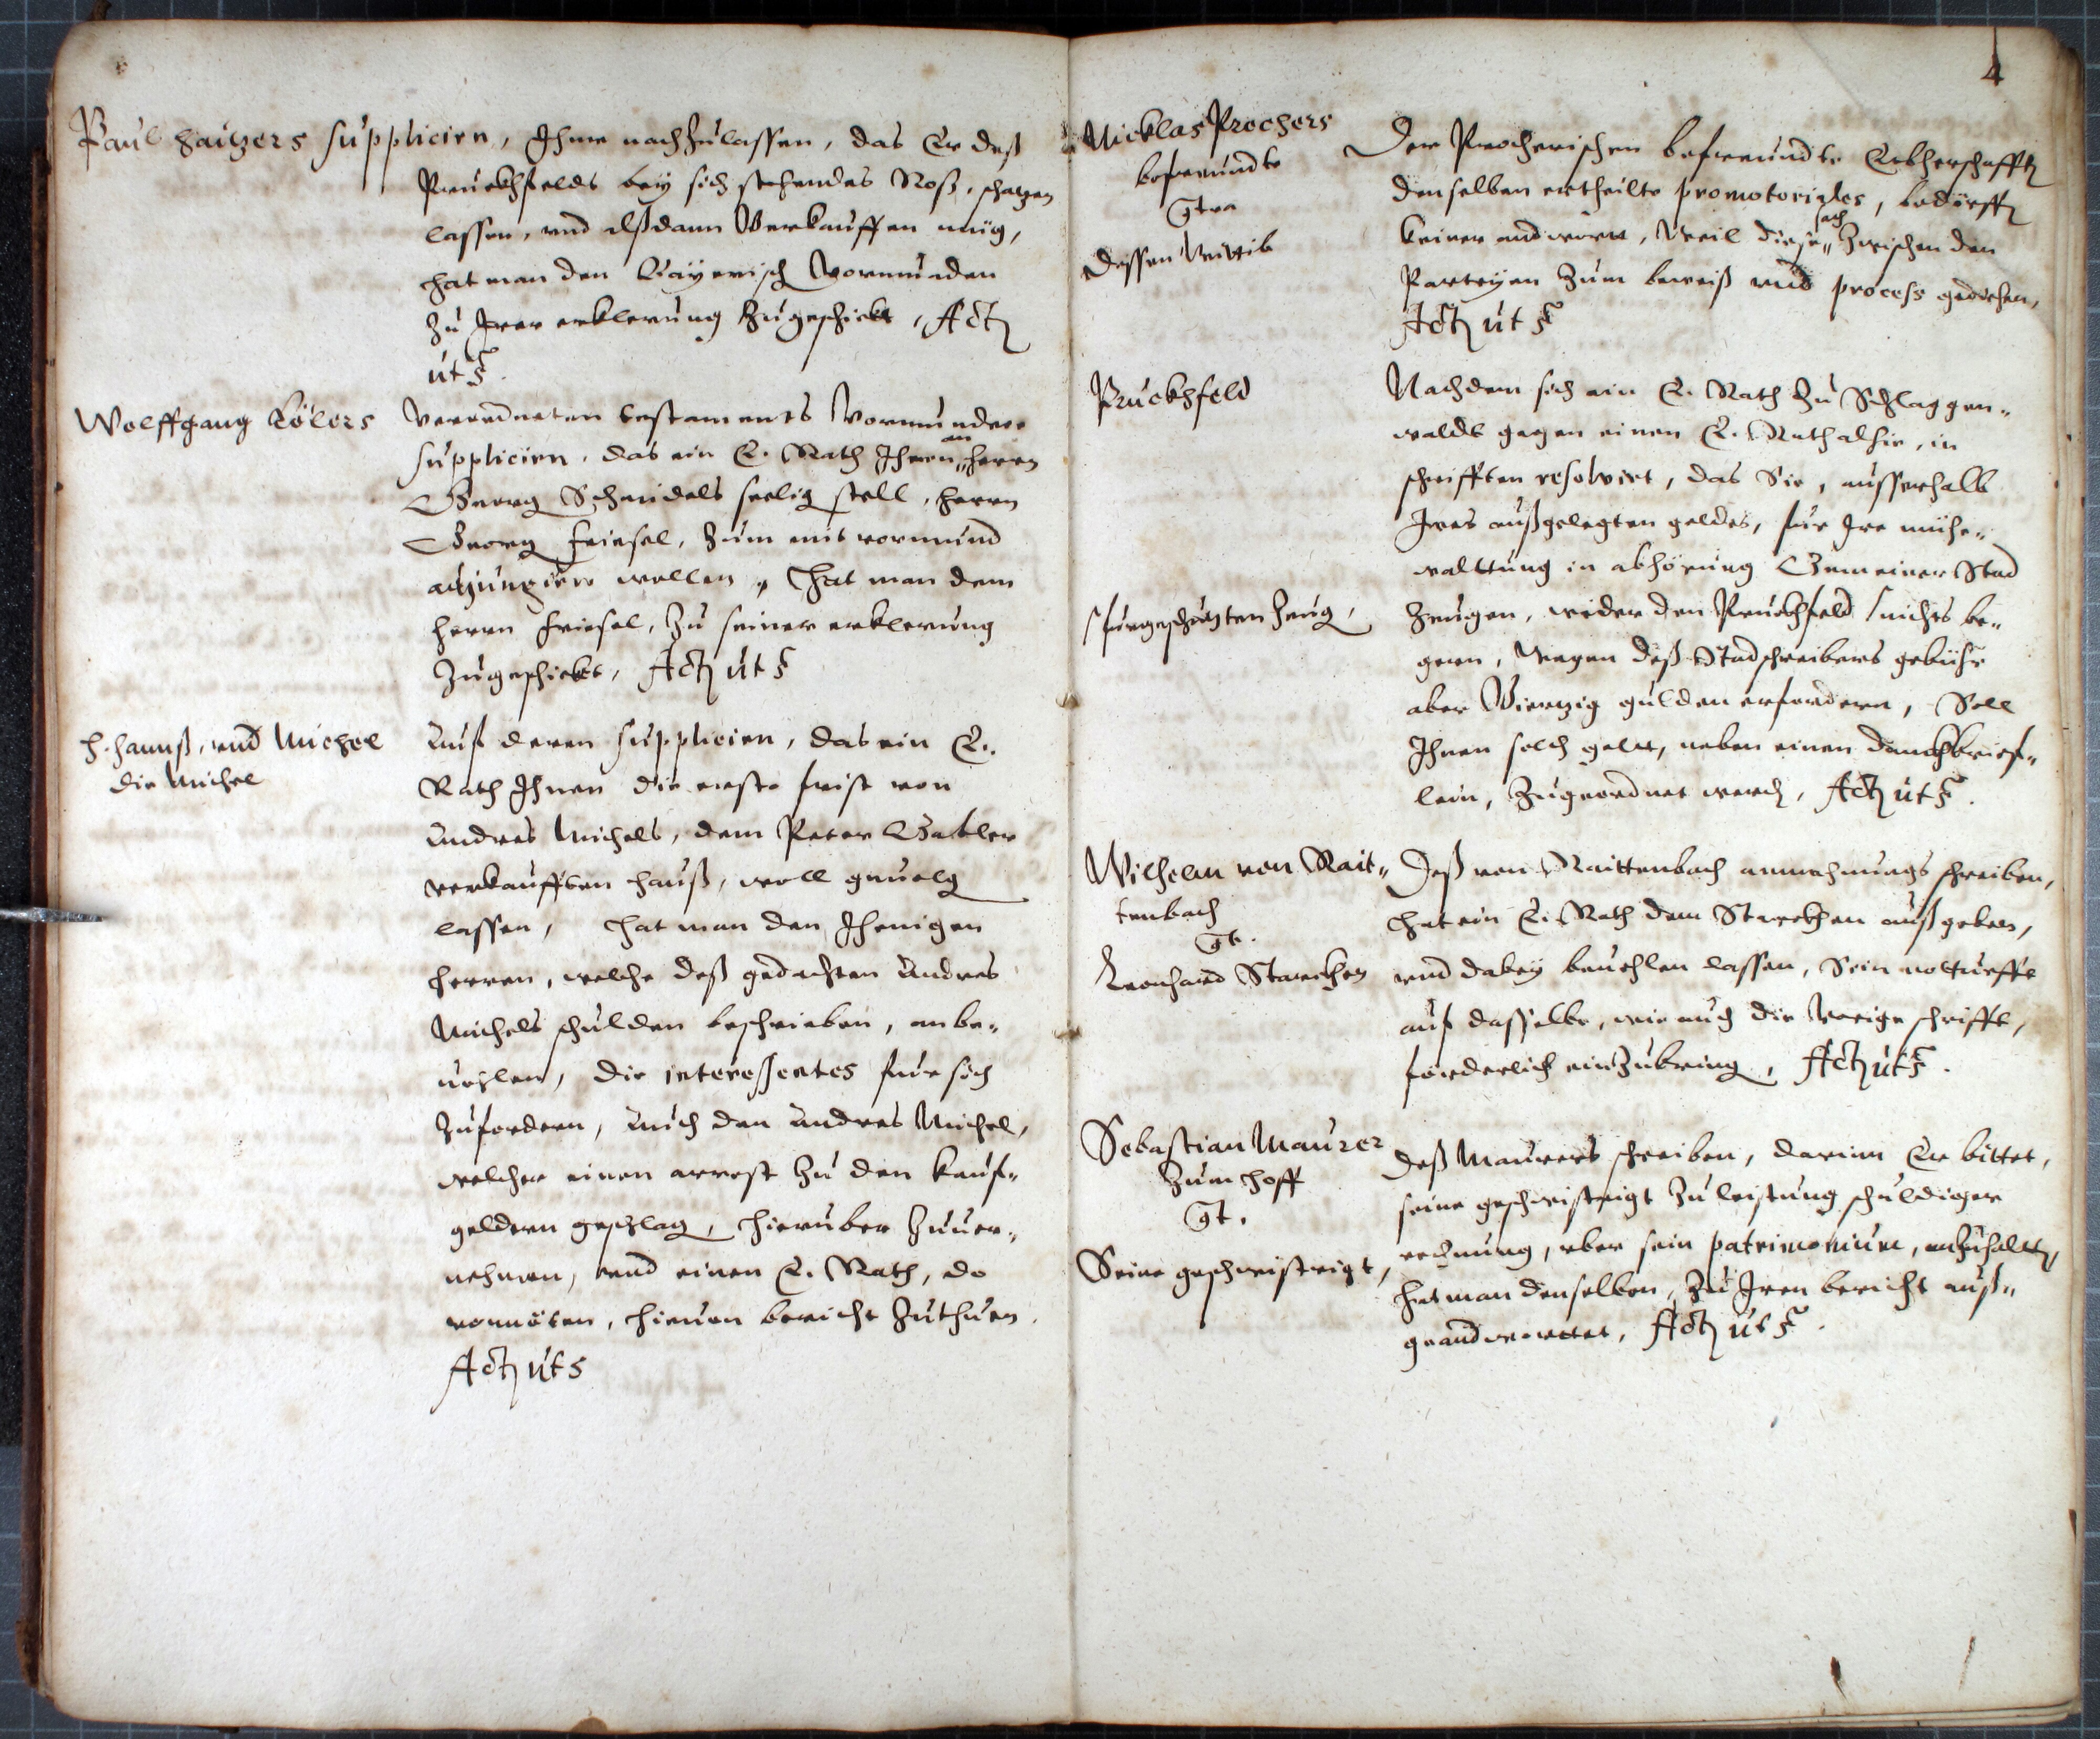 Paul Haitzers supplicirn, Ihme nachzulassen, das Er deß
Pruckhfelds bey sich stehendes Roß, schatzen
lassen, vnd alßdann Verkauffen müg,
hat man den Bayerisch Vormunden
zu Irer erklerung zugeschickt, Act
ut s.
Wolffgang Kölers
Verordneten testaments Vormundere
supplicirn, das ein E. Rath Ihnen an herrn
Georg Schmidels seelig stell, herrn
Georg Friesel, zum mit vormund
adjungirn wollen, hat man dem
herrn Friesel, zu seiner erklerung
zugeschickt, Act ut s
H. Hannß, vnd Michel
die Michel
Auf deren supplicirn, das ein E.
Rath Ihnen die erste frist von
Andres Michels, dem Peter Gabler
verkaufften hauß, woll geuolg
lassen, hat man den Jhenigen
herren, welche deß gedachten Andres
Michels schulden beschrieben, anbe„
uohlen, die interessentes für sich
zufordern, Auch den Andres Michel,
welcher einen arrest zu den kauf„
geldern geschlag, hierüber zuuer„
nehmen, vnd einen E. Rath, do
vonnöten, hieuon bericht zuthuen.
Act ut s
4
Nicklas Prochers
befreundte
Contra
dessen Weib
Der Procherischen befreundte Erbherschafft
denselben ertheilte promotoriales, bedörfft
keiner andtwort, Weil diese sach zwischen den
Parteyen zum beweiß vnd process gediehen,
Act ut s
Pruckhfeld
Nachdem sich ein E. Rath zu Schlaggen„
waldt gegen einen E. Rath alhie, in
schrifften resolvirt, das Sie, ausserhalb
Ires außgelegten geldes, für Ire mühe„
waltung in abhörung Gemeiner Stad
zeugen, wider den Pruckhfeld nichts be„
fürgeschutzten zeug,
gern, Wegen deß Stadschreibers gebühr
aber Viertzig gulden erfordern, Soll
Ihnen solch gelt, neben einen danckhbrief„
lein, zugeordnet werd, Act ut s.
Wilhelm von Rait„
tenbach
Ct.
Leonhard Starckhen
Deß von Raittenbach anmahnungs schreiben,
hat ein E. Rath dem Starckhen auß geben,
vnd dabey beuehlen lassen, Sein notturfft
auf dasselbe, wie auch die Vorige schrifft,
forderlich einzubring, Act ut s.
Sebastian Maurer
zum Hoff
Ct.
Seine geschwistrigt,
Deß Maurers schreiben, darinn Er bittet,
seine geschwistrigt zu leistung schuldiger
rechnung, vber sein patrimonium, anzuhalten,
hat man denselben, zu Iren bericht auß„
geandtwortet, Act ut s.